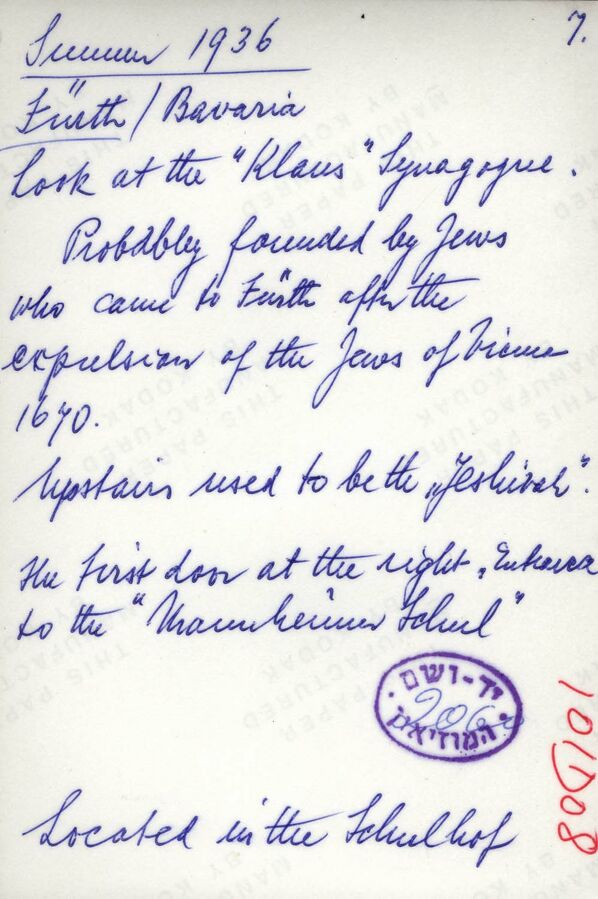 7.
Summer 1936
Fürth / Bavaria
Look at the "Klaus" Synagogue.
Probabbly founded by Jews
who came to Fürth after the
expulsion of the Jews of Vienne
1670.
Upstairs used to be the „Jeshivah".
The first door at the right „Entrance
to the "Mannheimer Schul"
יד-ושם
המוזיאון
Located in the Schulhof
THIS PAPER
MANUFACTURED
BY KODAK